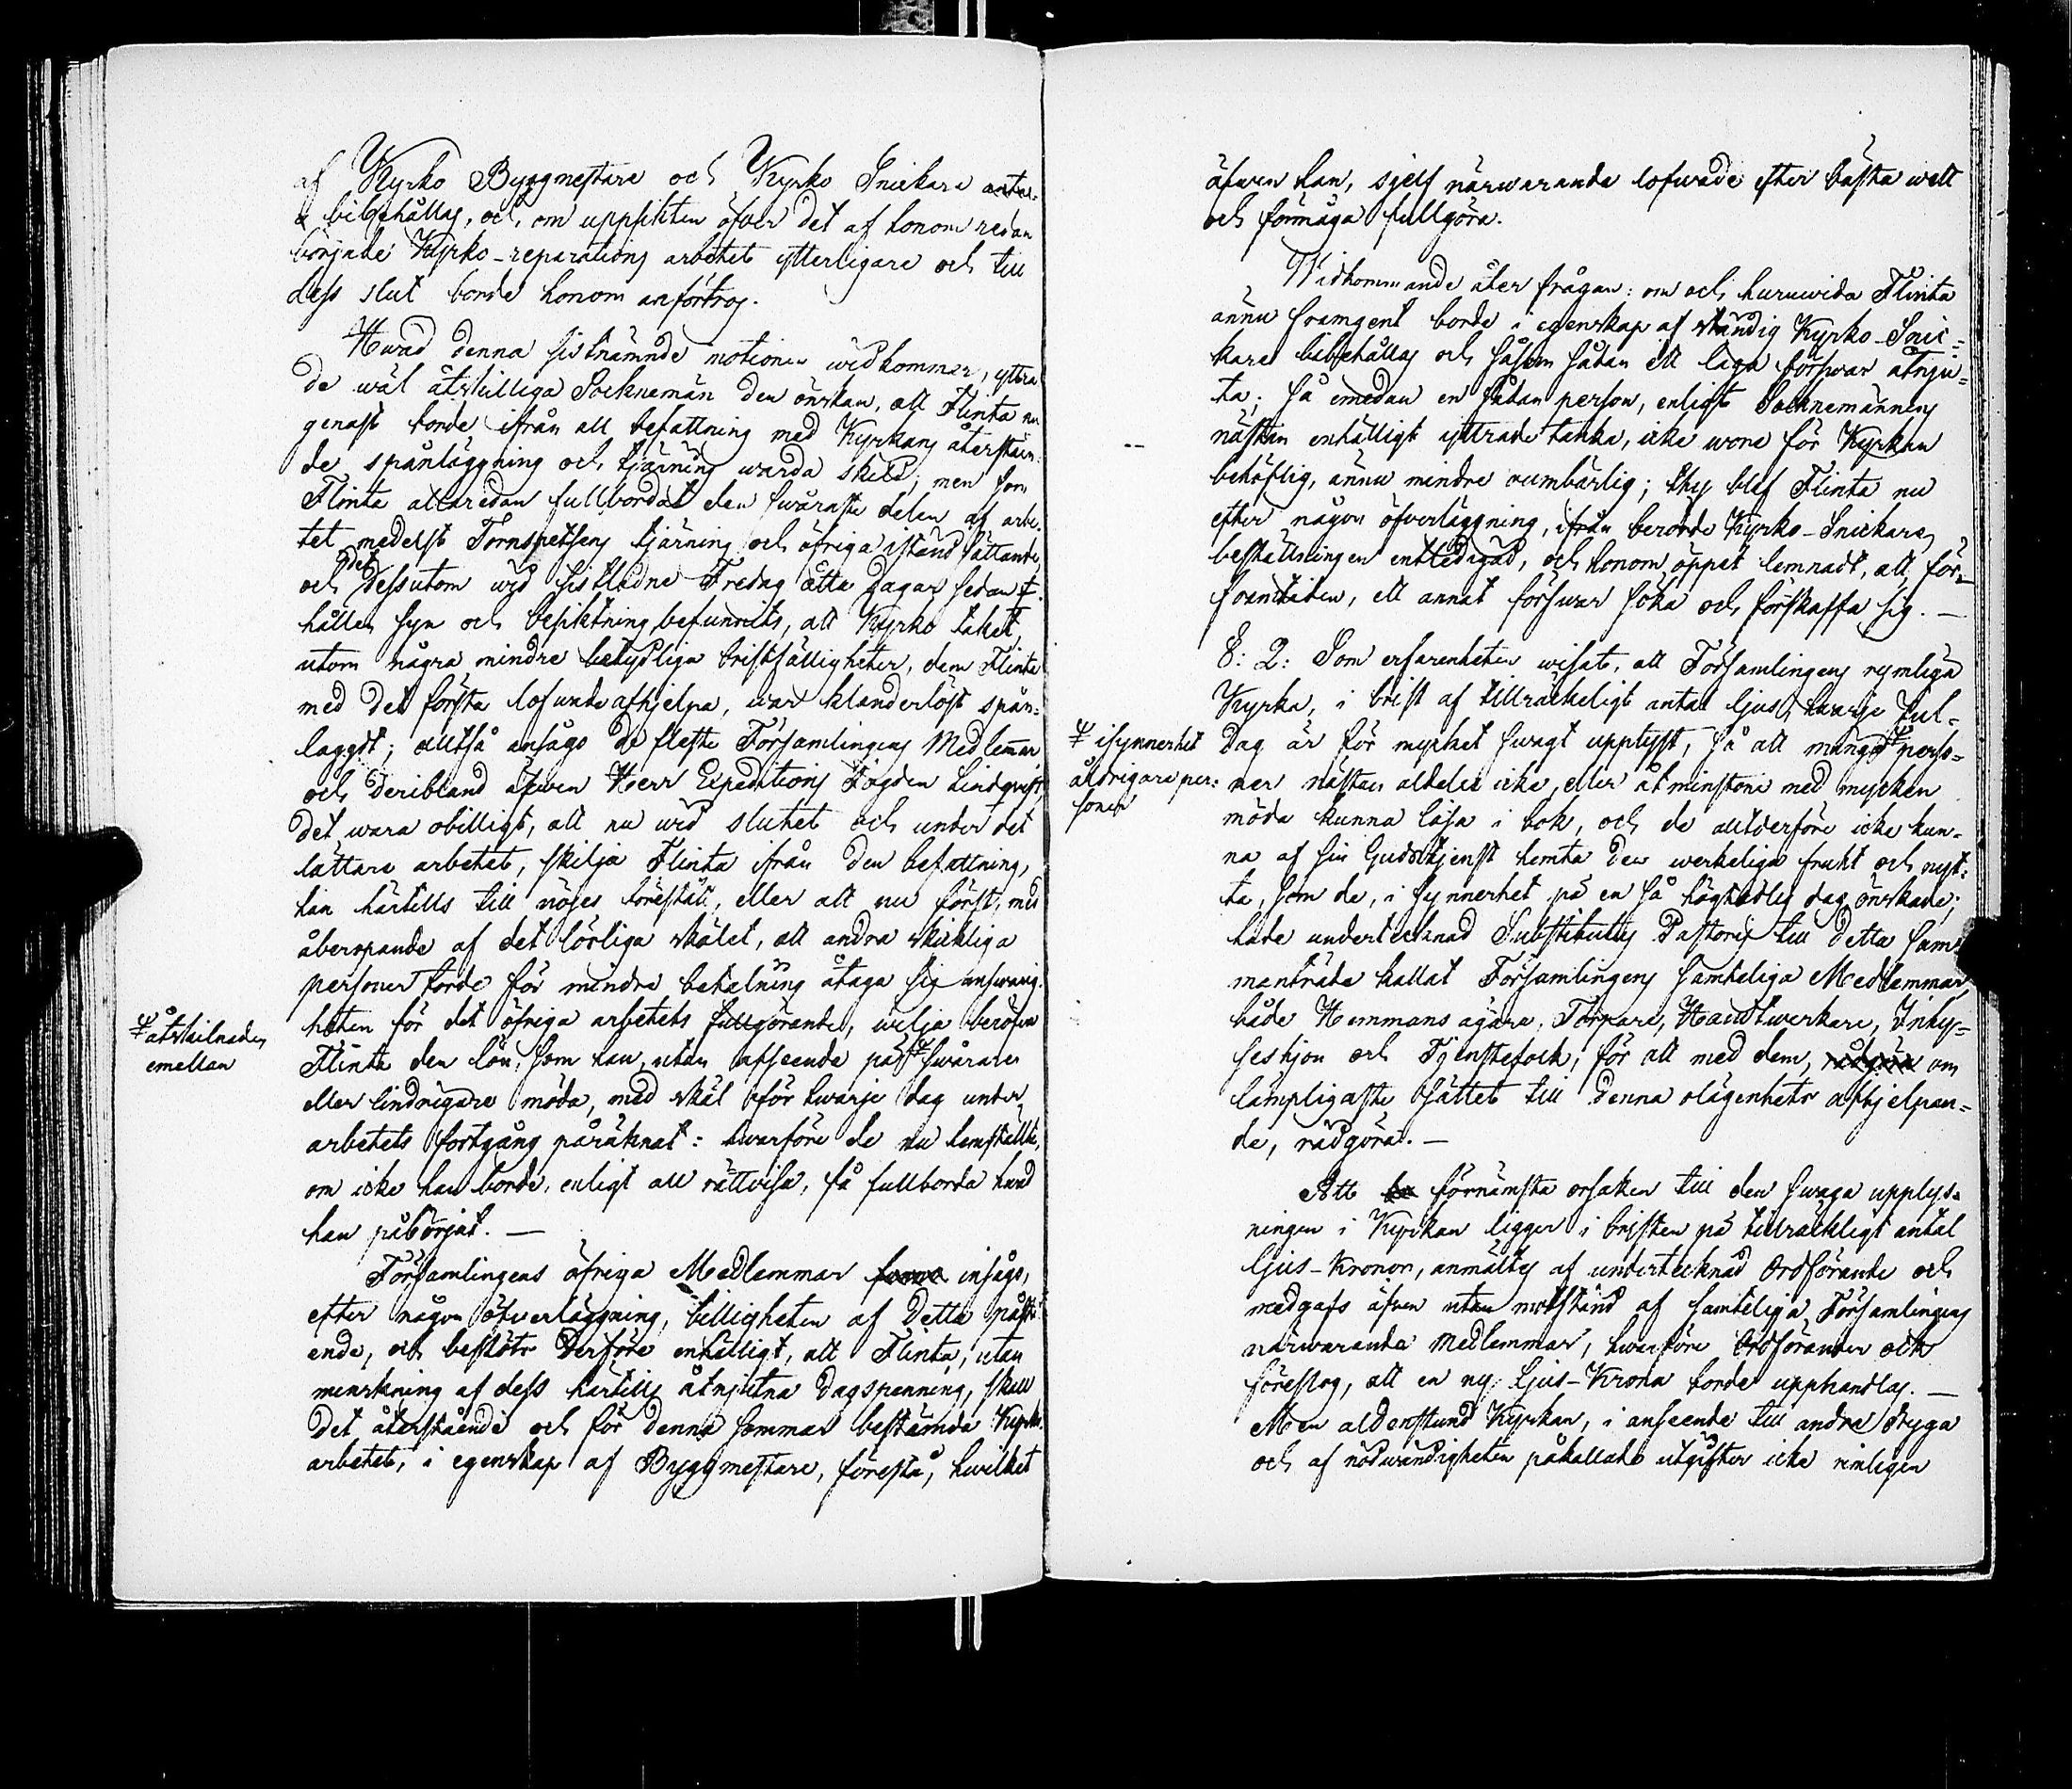 af Kyrko Byggmestare och Kyrko Snickare anta-
s bibehållas, och, om uppsikten öfver det af honom redan
började Kyrko-reparations arbetet ytterligare och till
dess slut borde honom anförtros.
Hwad denna sistnämnde motionen widkommer, yttra
de wäl åtskilliga Socknemän den önskan, att Flinta nu
genast borde ifrån all befattning med Kyrkans återståen-
de spånläggning och tjärning warda skild; men som
Flinta allaredan fullbordat den swåraste delen af arbe-
tet medelst Tornspetsens tjärning och öfriga iståndsättande,
och det dessutom wid sistledne Fredag åtta dagar sedan
hållen syn och besiktning befunnits, att Kyrko taket,
utom några mindre betydliga bristfälligheter, dem Flinta
med det första lofwade afhjelpa, war klanderlöst spån-
laggdt; alltså ansågo de fleste Församlingens Medlemmar
och deribland äfwen Herr Expeditions Fogden Lindqvist,
det wara obilligt, att nu wid slutet och under det
lättare arbetet, skilja Flinta ifrån den befattning,
han härtills till nöjes förestått, eller att nu först, med
åberopande af det lösliga skälet, att andra skickliga
personer torde för mindre betalning åtaga sig answarig-
heten för det öfriga arbetets fullgörande, wilja beröfwa
Flinta den lön, som han, utan afseende på swårare
åtskilnaden
emellan
eller lindrigare möda, med skäl för hwarje dag under
arbetets fortgång påräknat: hwarföre de nu hemställte,
om icke han borde, enligt all rättvisa, få fullborda hwad
han påbörjat. —
Församlingens öfriga Medlemmar insågo,
efter någon öfverläggning, billigheten af detta påstå-
ende, och beslöto derföre enhälligt, att Flinta, utan
minskning af dess härtills åtnjutna dagspenning, skall
det återstående och för denna sommar bestämda Kyrko-
arbetet, i egenskap af Byggmestare, förestå, hwilket
äfwen han, sjelf närwarande lofwade efter bästa wett
och förmåga fullgöra.
Widkommande åter frågan: om och huruwida Flinta
ännu framgent borde i egenskap af ständig Kyrko-Snic-
kare bibehållas och såsom sådan ett laga förswar åtnju-
ta; så emedan en sådan person, enligt Socknemännens
nästan enhälligt yttrade tanke, icke wore för Kyrkan
behöflig, ännu mindre oumbärlig; thy blef Flinta nu
efter någon öfverläggning, ifrån berörde Kyrko-Snickare
beställningen entledigad, och honom öppet lemnadt, att för
framtiden, ett annat förswar söka och förskaffa sig. —
§: 2: Som erfarenheten wisat, att Församlingens rymliga
Kyrka, i brist af tillräckeligt antal ljus, hwarje Jul-
dag är för mycket swagt upplyst, så att många perso-
isynnerhet
åldrigare per-
soner
ner nästan aldeles icke, eller åtminstone med mycken
möda kunna läsa i bok, och de alltderföre icke kun-
na af sin Gudstjenst hemta den werkeliga frukt och nyt-
ta, som de, i synnerhet på en så högtidlig dag önskade;
hade undertecknad Substitutus Pastoris till detta sam-
manträde kallat Församlingens samteliga Medlemmar,
både Hemmans ägare, Torpare, Handtwerkare, Inhys-
seshjon och Tjenstefolk, för att med dem, rådgöra om
lämpligaste sättet till denna olägenhets afhjelpan-
de, rådgöra. —
Att förnämsta orsaken till den swaga upplys-
ningen i Kyrkan ligger i bristen på tillräckligt antal
ljus-Kronor, anmältes af undertecknad Ordförande och
medgafs äfwen utan motstånd af samteliga Församlingens
närwarande Medlemmar, hwarföre Ordföranden ock
föreslog, att en ny Ljus-Krona borde upphandlas. —
Men aldenstund Kyrkan, i anseende till andra dryga
och af nödwändigheten påkallade utgifter icke rimligen